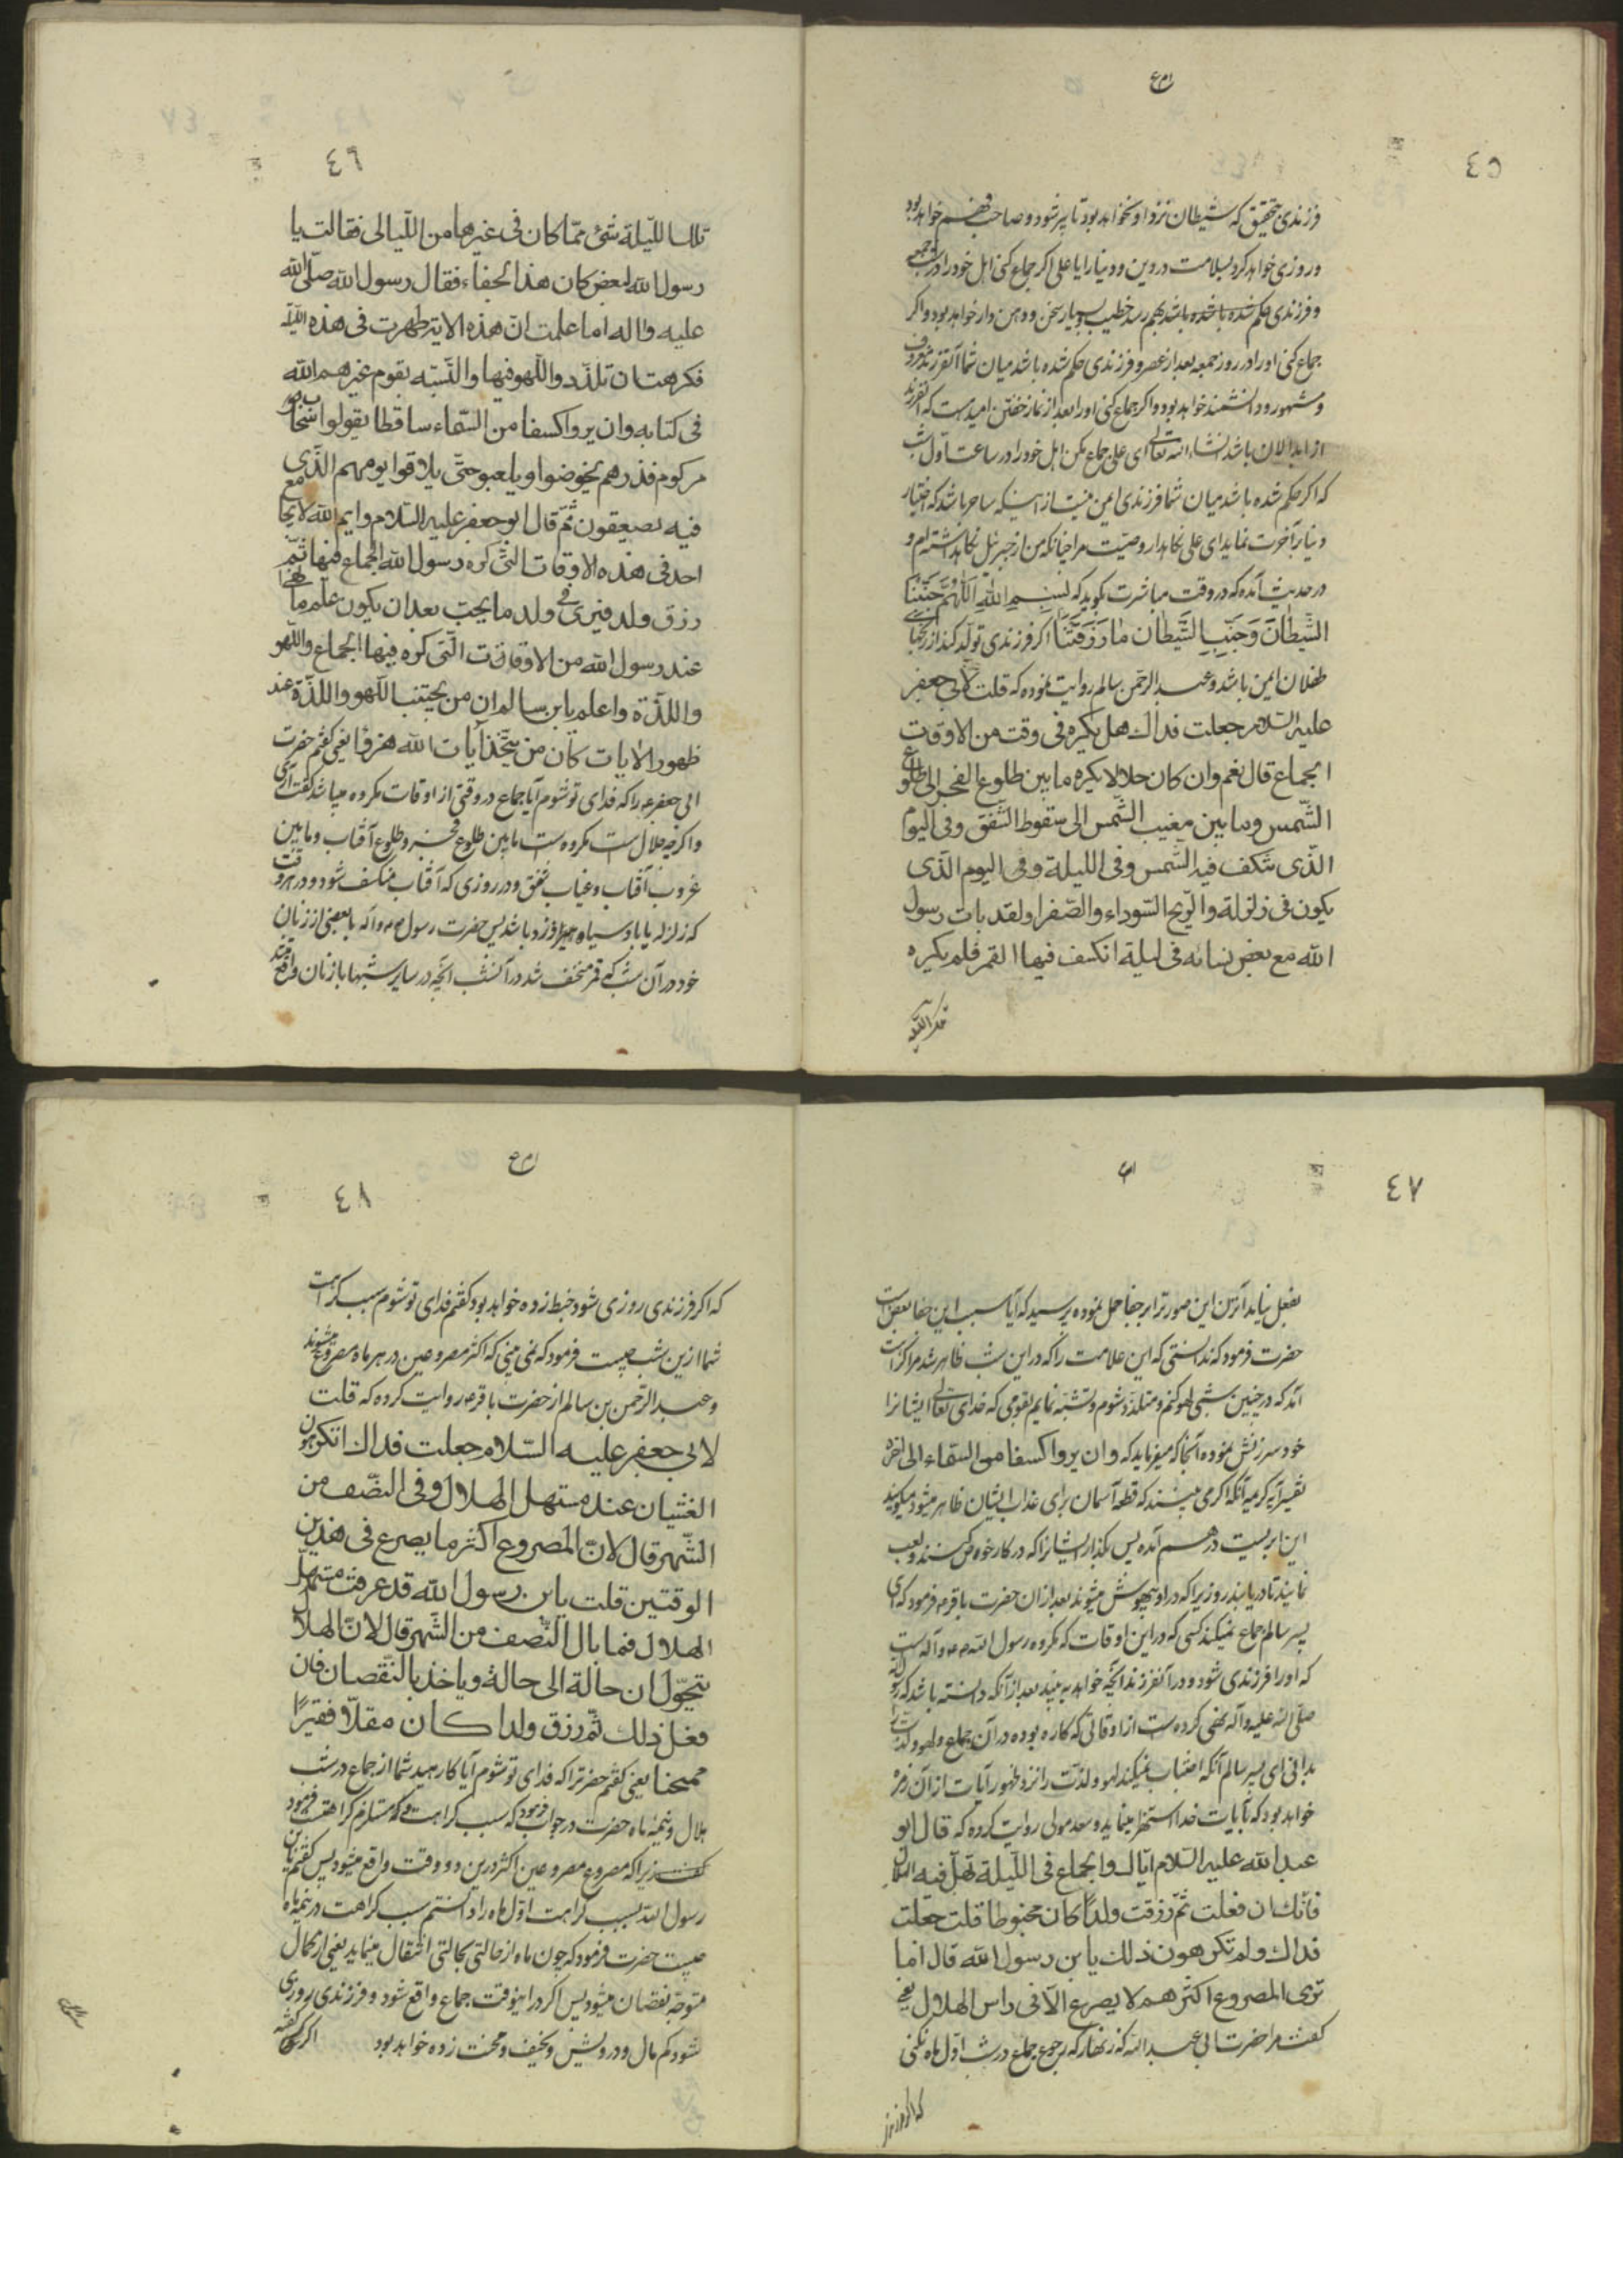 ٤٥
فرزندی حقیق که شیطان نزد او نخواهد بود تا پیر شود و صاحب فهم خواهد بود
و روزی خواهد کرد بسلامت در دین و دنیا را یا علی اگر جماع کنی اهل خود را در شب جمعه
و فرزندی حکم شده باشد بهم رسد خطیب و بسیار سخن و دهن دار خواهد بود و اگر
جماع کنی او را در روز جمعه بعد از عصر و فرزندی حکم شده باشد میان شما آنفرزند معروف
و مشهور و دانشمند خواهد بود و اگر جماع کنی او را بعد از نماز خفتن امید هست که آنفرزند
از ابدالان باشد انشاء الله تعالی ای علی جماع مکن اهل خود را در ساعت اول شب
که اگر حکم شده باشد میان شما فرزندی ایمن نیست از اینکه ساحر باشد که اختیار
دنیا بر آخرت نماید ای علی نگاهدار وصیت مرا چنانکه من از جبرئیل نگاهداشته‌ام و
در حدیث آمده که در وقت مباشرت بگوید که بِسْمِ اللهِ اَللّهُمَّ جَنِّبْنَا
الشَّیطانَ وَجَنِّبِ الشَّیطان مٰا رَزَقتَنٰا اگر فرزندی تولد کند از
طفلان ایمن باشد و عبد الرحمن سالم روایت نموده که قلت لابی جعفر
علیه السلام جعلت فداك هل یکره فی وقت من الاوقات
الجماع قال نعم وان کان حلالا یکره ما بین طلوع الفجر الی طلوع
الشّمس وما بین مغیب الشّمس الی سقوط الشّفق وفی الیوم
الّذی تنکف فیه الشّمس وفی اللیلة وفی الیوم الّذی
یکون فی زلزلة والرّیح السّوداء والصّفرا ولقد بات رسول
الله مع بعض نسائه فی لیلة انکسف فیها القمر فلم یکره
٤٦
تلك اللّیلة شئ ممّا کان فی غیرها من اللّیالی فقالت یا
رسول الله لبغض کان هذا الجفاء فقال رسول الله صلّی الله
علیه واله اما علمت انّ هذه الایة ظهرت فی هذه اللیلة
فکرهت ان تلذّد واللّهو فیها والتّشبّه بقوم غیرهم الله
فی کتابه وان یروا کسفا من السّماء ساقطا یقولوا سحاب
مرکوم فذرهم یخوضوا ویلعبو حتّی یلاقوا یومهم الّذی
فیه یصعقون ثمّ قال ابو جعفر علیه السّلام وایم الله لا یجامع
احد فی هذه الاوقات الّتی کره رسول الله الجماع فیها ثمّ
رزق ولد فیری فی ولد ما یحب بعد ان یکون علم ما نهی
عند رسول الله من الاوقات الّتی کره فیها الجماع واللّهو
واللّذّة واعلم یابن سالم ان من یجتنب اللّهو واللّذة عند
ظهور الایات کان من یتّخذ آیات الله هزؤا یعنی گفتم حضرت
ابی جعفر ع را که فدای تو شوم آیا جماع در وقتی از اوقات مکروه میباشد گفت آری
و اگرچه حلال است مکروه است ما بین طلوع فجر و طلوع آفتاب و ما بین
غروب آفتاب و غیاب شفق و در روزی که آفتاب منکسف شود و در هر وقت
که زلزله یا باد سیاه یا زرد باشد پس حضرت رسول ص و آله با بعضی از زنان
خود در آن شب که قمر منخسف شد در آنشب آنچه در سایر شبها با زنان واقع
٤٧
بفعل نیامد آنزن این صورت را بر جفا حمل نموده پرسید که آیا سبب این جفا بغض است
حضرت فرمود که ندانستی که این علامت را که در این شب ظاهر شد مرا کراهت
آمد که در چنین شبی لهو کنم و متلذد شوم و تشبه نمایم بقومی که خدای تعالی ایشانرا
خود سرزنش نموده آنجا که میفرماید که وان یروا کسفا من السّماء الی اخره
تفسیر آیه کریمه آنکه اگر می بینند که قطعه آسمان برای عذاب ایشان ظاهر میشود میگویند
این ابریست در هم آمده پس بگذار ایشانرا که در کار خوض کنند و لعب
نمایند تا دریابند روزیرا که در او بیهوش میشوند بعد از آن حضرت باقر ع فرمود که ای
پسر سالم جماع نمیکند کسی که در این اوقات که مکروه رسول الله ص و آله است
که او را فرزندی شود و در آنفرزند آنچه خواهد به بیند بعد از آنکه دانسته باشد که رسول الله
صلی الله علیه و آله نهی کرده است از اوقاتی که کاره بوده در آن جماع و لهو و لذت را
بدانی ای پسر سالم آنکه اجتناب نمیکند لهو و لذت را نزد ظهور آیات از آن زمره
خواهد بود که بآیات خدا استهزا مینماید و سعد مولی روایت کرده که قال ابو
عبد الله علیه السّلام ایّاك والجماع فی اللّیلة تهلّ فیه الهلال
فانّك ان فعلت ثمّ رزقت ولدًا کان مخبوطا قلت جعلت
فداك ولم تکرهون ذلك یابن رسول الله قال اما
تری المصروع اکثرهم لا یصرع الّا فی راس الهلال یعنی
گفت مرا حضرت ابی عبد الله که زنهار که رجوع جماع در شب اول ماه نکنی
که اگر فرزند
٤٨
که اگر فرزندی روزی شود خبط زده خواهد بود گفتم فدای تو شوم سبب کراهت
شما ازین شب چیست فرمود که نمی بینی که اکثر مصروعین در هر ماه مصروع میشوند
و عبد الرّحمن بن سالم از حضرت باقر ع روایت کرده که قلت
لابی جعفر علیه السّلام جعلت فداك اتکرهون
الغشیان عند مستهل الهلال وفی النّصف من
الشّهر قال لانّ المصروع اکثر ما یصرع فی هذین
الوقتین قلت یابن رسول الله قد عرفت مستهلّ
الهلال فما بال النّصف من الشّهر قال لانّ الهلال
یتحوّل ان حالة الی حالة ویاخذ بالنّقصان فان
فعل ذلك ثمّ رزق ولدا کان مقلّا فقیرًا
ممحنا یعنی گفتم حضرت را که فدای تو شوم آیا کارهید شما از جماع در شب
هلال و نیمه ماه حضرت در جواب فرمود که سبب کراهت
زیرا که مصروع مصروعین اکثر درین دو وقت واقع میشود پس گفتم یابن
رسول الله سبب کراهت اول ماه را دانستم سبب کراهت در نیمه ماه
چیست حضرت فرمود که چون ماه از حالتی بحالتی انتقال مینماید یعنی از کمال
متوجه نقصان میشود پس اگر در اینوقت جماع واقع شود و فرزندی روزی
شود کم مال و درویش و نحیف و محنت زده خواهد بود